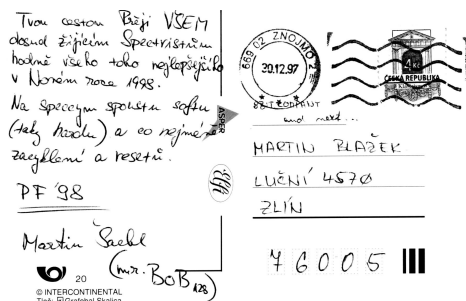 Tvou cestou Přeji VŠEM
dosud žijícím Spectristům
hodně všeho toho nejlepšejšího
v Novém roce 1998.
Na speccym spoustu softu
(taky hardu) a co nejméně
zacyklení a resetů.
PF '98
Martin
(mr. BOB 128)
20
© INTERCONTINENTAL
Tisk: Grafobal Skalica
ASTER
669 02 ZNOJMO 2
30.12.97
ČESKÁ REPUBLIKA
4
8BIT COMPANY
and next...
MARTIN BLAŽEK
LUČNÍ 4570
ZLÍN
76005